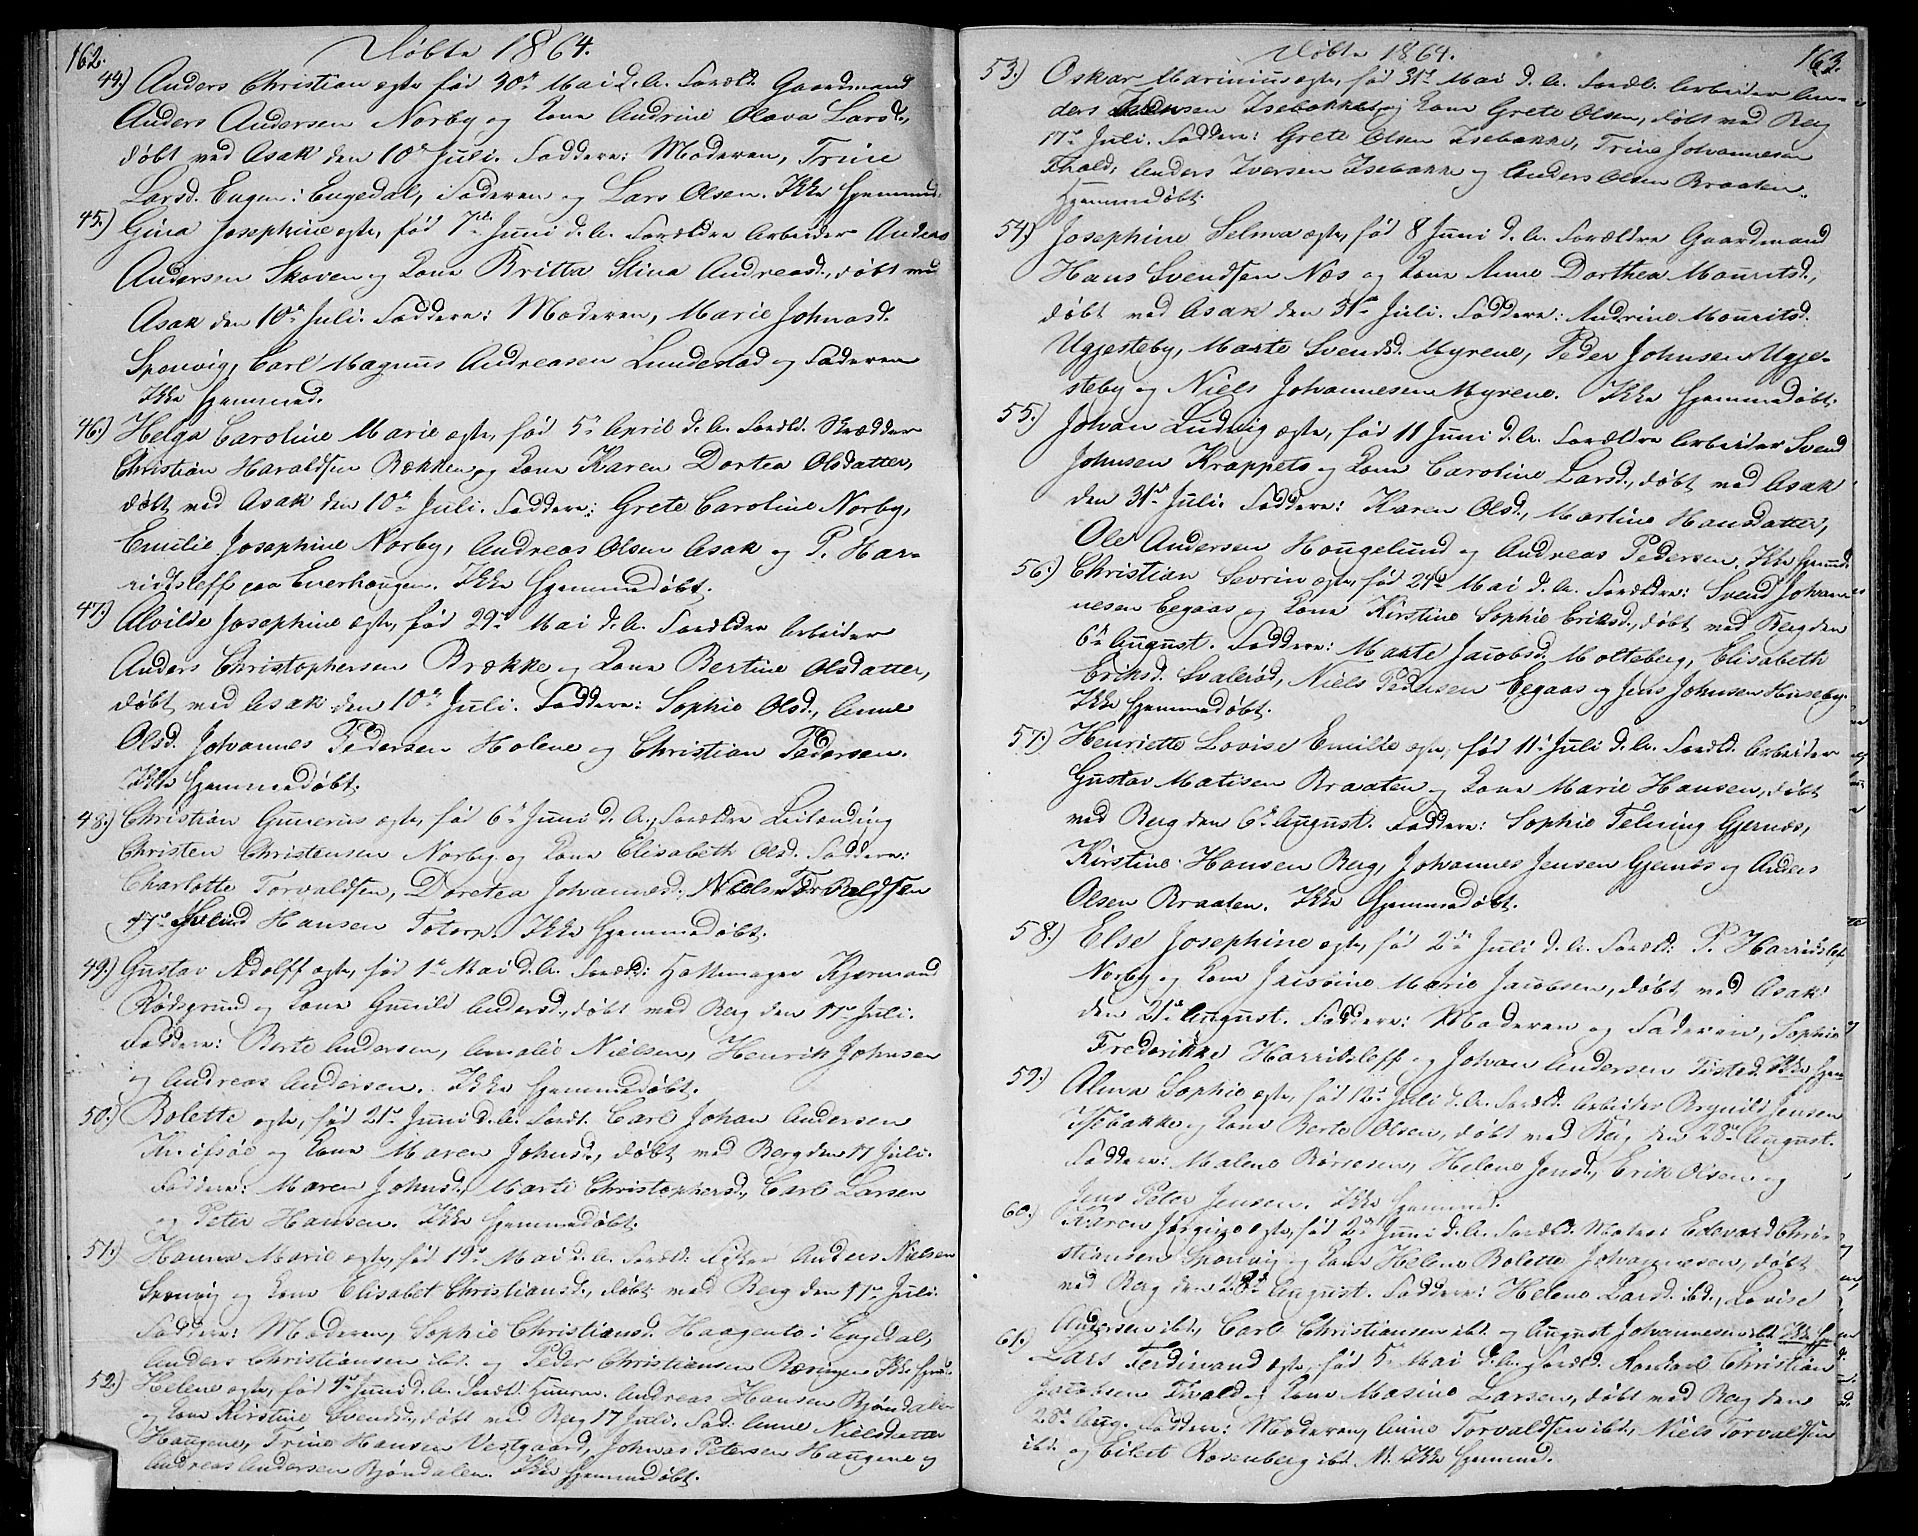 162.
Döbte 1864.
44.) Anders Christian ægte, föd 30te Mai d. A. Foræld. Gaardmand
Anders Andersen Norby og Kone Andrine Olava Larsd.,
döbt ved Asak den 10de Juli. Faddere: Moderen, Trine
Larsd. Eugen i Engedal, Faderen og Lars Olsen. Ikke Hjemmed.
45.) Gina Josephine ægte, föd 7de Juni d. A. Forældre Arbeider Anders
Andersen Skoven og Kone Britta Stina Andreasd., döbt ved
Asak den 10de Juli. Faddere: Moderen, Marie Johnasd.
Sponvig, Carl Magnus Andreasen Lundestad og Faderen
Ikke Hjemmed.
46.) Helga Caroline Marie ægte, föd 5te April d. A. Foræld. Skrædder
Christian Haraldsen Bækken og Kone Karen Dortea Olsdatter,
döbt ved Asak den 10de Juli. Faddere: Grete Caroline Norby,
Emilie Josephine Norby, Andreas Olsen Asak og P. Har-
ridsleff paa Enerhaugen. Ikke Hjemmedöbt.
47.) Alvilde Josephine ægte, föd 29de Mai d. A. Forældre Arbeider
Anders Christophersen Brække og Kone Bertine Olsdatter,
döbt ved Asak den 10de Juli. Faddere: Sophie Olsd., Anne
Olsd. Johannes Pedersen Holene og Christian Pedersen.
Ikke Hjemmedöbt.
48.) Christian Gunerus ægte, föd 6te Juni d. A., Forældre Leilænding
Christen Christensen Norby og Kone Elisabeth Olsd. Faddere:
Charlotte Torvaldsen, Dortea Johannesd., Niels Torvaldsen
Svend Hansen Totorp. Ikke Hjemmedöbt.
49.) Gustav Adolff ægte, föd 1te Mai d. A. Foræld: Hattemager Kjermand
Rödsgrund og Kone Gunild Andersd., döbt ved Berg den 17de Juli.
Faddere: Berte Andersen, Amalie Nielsen, Henrik Johnsen
og Andreas Andersen. Ikke Hjemmedöbt.
50.) Bolette ægte, föd 21de Juni d. A. Foræl. Carl Johan Andersen
Knifsöe og Kone Maren Johnsd., döbt ved Berg den 17 Juli.
Faddere: Maren Johnsd. Marte Christophersd., Carl Larsen
og Peter Hansen. Ikke Hjemmedöbt.
51.) Hanna Marie ægte, föd 19de Mai d. A. Foræld. Fisker Anders Nielsen
Sponvig og Kone Elisabet Christiansd., döbt ved Berg den 17de Juli.
Faddere: Moderen, Sophie Christiansd. Haagento i Engedal,
Anders Christiansen ibd. og Peder Christiansen Ikke Hjemd.
52.) Helene ægte, föd 9de Juni d. A. Foræld: Huusm. Andreas Hansen Björndalen
og Kone Kirstine Svendsd., döbt ved Berg 17 Juli. Fad: Anne Nielsdatter
Haugene, Trine Hansen Vestgaard, Johnas Petersen Haugene og
Andreas Andersen Björndalen. Ikke Hjemmedöbt.
163.
Döbte 1864.
53.) Oskar Marinius ægte, föd 31te Mai d. A. Foræld. Arbeider An-
ders Iversen Isebakke og Kone Grete Olsen, döbt ved Berg
17de Juli. Faddere: Grete Olsen Isebakke, Trine Johannesen
Anders Iversen Isebakke og Anders Olsen Braaten.
Hjemmedöbt.
54.) Josephine Selma ægte, föd 8 Juni d. A. Forældre Gaardmand
Hans Svendsen Næs og Kone Anne Dorthea Mouritsd.,
döbt ved Asak den 31te Juli. Faddere: Andrine Mouritsd.
Ugjesteby, Marte Svendsd. Myrene, Peder Johnsen Ugje-
steby og Niels Johannesen Myrene. Ikke Hjemmedöbt.
55.) Johan Ludvig ægte, föd 11 Juni d. A. Forældre Arbeider Svend
Johnsen Krappeto og Kone Caroline Larsd., döbt ved Asak
den 31te Juli. Faddere: Karen Olsd., Martine Hansdatter,
Ole Andersen Hougelund og Andreas Pedersen. Ikke Hjemmd.
56.) Christian Sevrin ægte, föd 24de Mai d. A. Forældre: Svend Johan-
nesen Eegaas og Kone Kirstine Sophie Eriksd., döbt ved Berg den
6te August. Faddere: Marte Jacobsd. Molteberg, Elisabeth
Eriksd. Svaleröd, Niels Pedersen Eegaas og Jens Johnsen Huseby
Ikke Hjemmedöbt.
57.) Henriette Lovise Emilie ægte, föd 11te Juli d. A. Foræld. Arbeider
Gustav Matisen Braaten og Kone Marie Hansen, döbt
ved Berg den 6te August. Faddere: Sophie Gjernæs,
Kirstine Hansen Berg, Johannes Jensen Gjernæs og Anders
Olsen Braaten. Ikke Hjemmedöbt.
58.) Else Josephine ægte, föd 2den Juli d. A. Foræld: P. Harridslef
Norby og Kone Marie Jacobsen, döbt ved Asak
den 21de August. Faddere: Moderen og Faderen, Sophie
Frederikke Harridsleff og Johan Andersen Tisted. Ikke Hjem
59.) Alma Sophie ægte, föd 12te Juli d. A. Foræld. Arbeider Brynild Jensen
Isebakke og Kone Berte Olsen, döbt ved Berg den 28de August.
Faddere: Malene Börresen, Helene Jensd., Erik Olsen og
Jens Peter Jensen. Ikke Hjemmed.
60.) Karen Jörgine ægte, föd 2den Juni d. A. Foræld. Matros Edevard Chri-
stiansen Sponvig og Kone Helene Bolette Johannesen, döbt
ved Berg den 28de August. Faddere: Helene Larsd. ibd., Lovise
Andersen ibd., Carl Christiansen ibd. og August Johannesen ibd. Ikke Hjem
61.) Lars Ferdinand ægte, föd 5te Mai d. A. Foræld. Christian
Jacobsen og Kone Masine Larsen, döbt ved Berg den
28de Aug. Faddere: Moderen, Anne Torvaldsen ibd., Niels Torvaldsen
ibd. og Eilert Rosenberg ibd. Ikke Hjemmed.